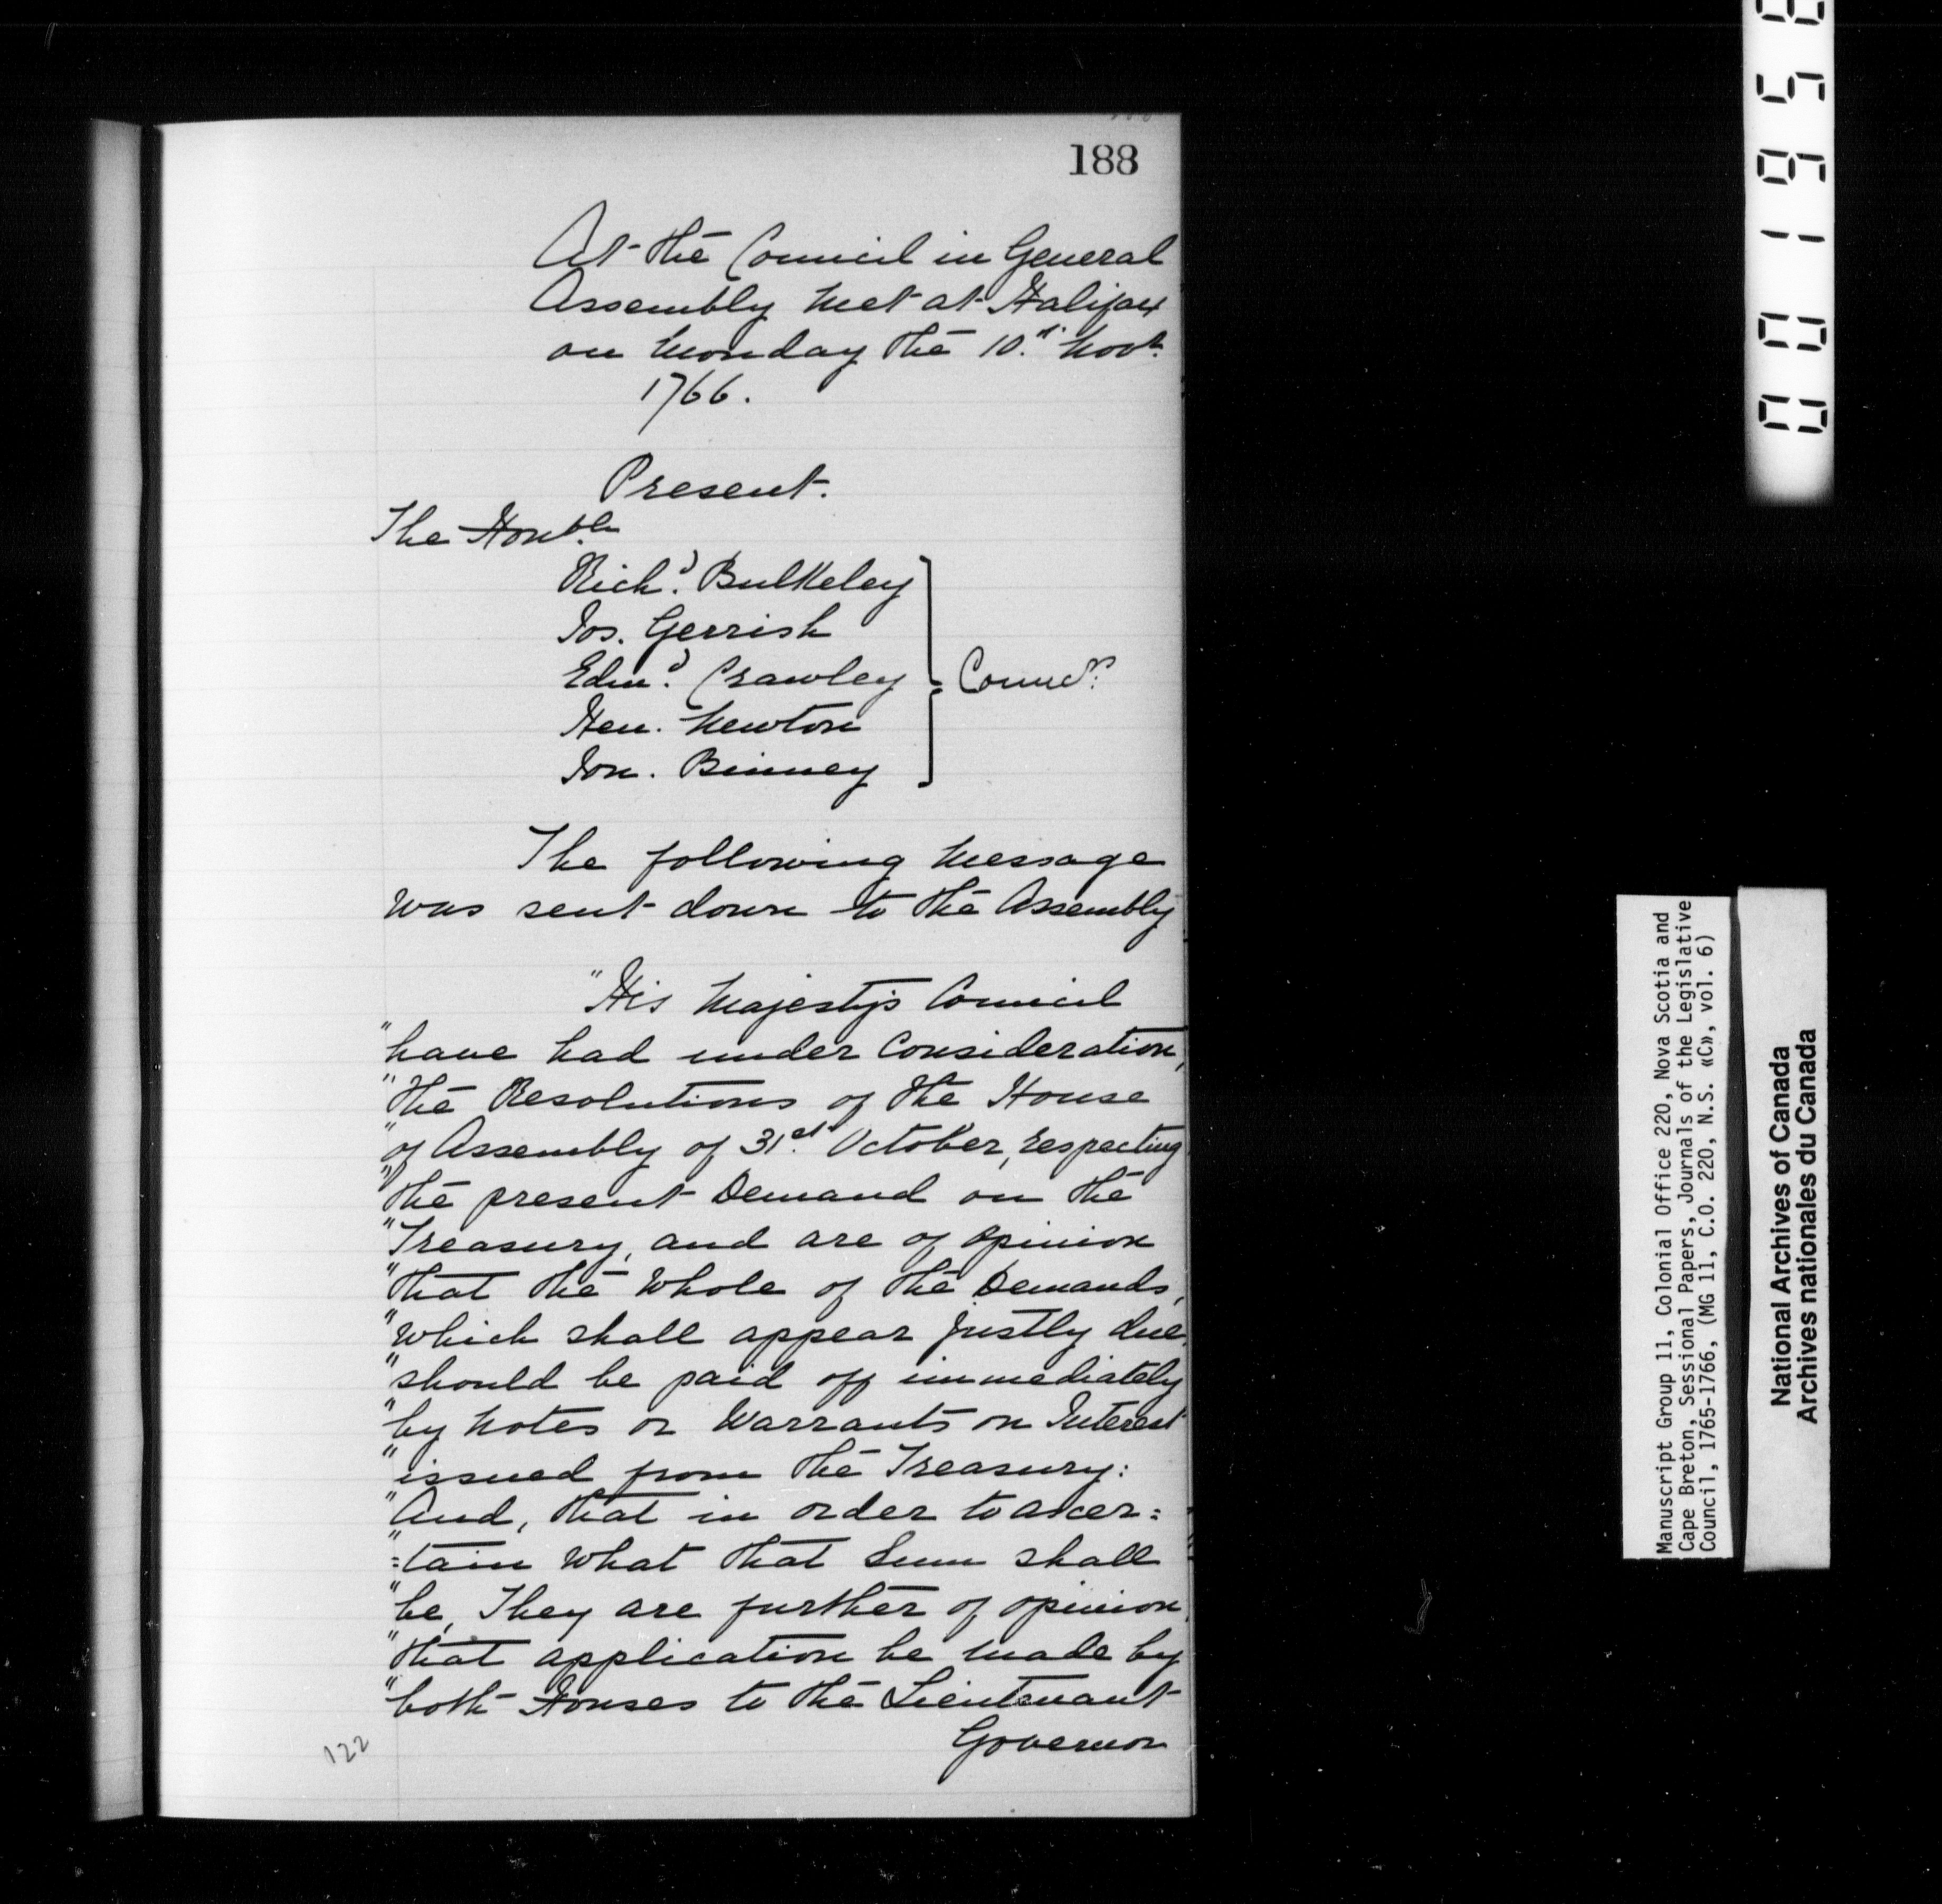 188
At the Council in General
Assembly met at Halifax
on Monday the 10.th Novr.
1766.
Present.
The Honble.
Richd. Bulkeley
Jos. Gerrish
Edmd. Crawley
Councrs.
Hen. Newton
Jon. Binney
The following Message
was sent down to the Assembly
"His Majesty's Council
"have had under Consideration,
"the Resolutions of the House
"of Assembly of 31st. October, respecting
"the present Demand on the
"Treasury, and are of opinion
"that the Whole of the Demands,
"which shall appear justly due,
"should be paid off immediately
"by Notes or Warrants on Interest
"issued from the Treasury:
"And, that in order to ascer=
"=tain what that Sum shall
"be, They are further of opinion,
"that application be made by
"both Houses to the Lieutenant
Governor
122
001956
Manuscript Group 11, Colonial Office 220, Nova Scotia and
Cape Breton, Sessional Papers, Journals of the Legislative
Council, 1765-1766, (MG 11, C.O. 220, N.S. «C», vol. 6)
National Archives of Canada
Archives nationales du Canada